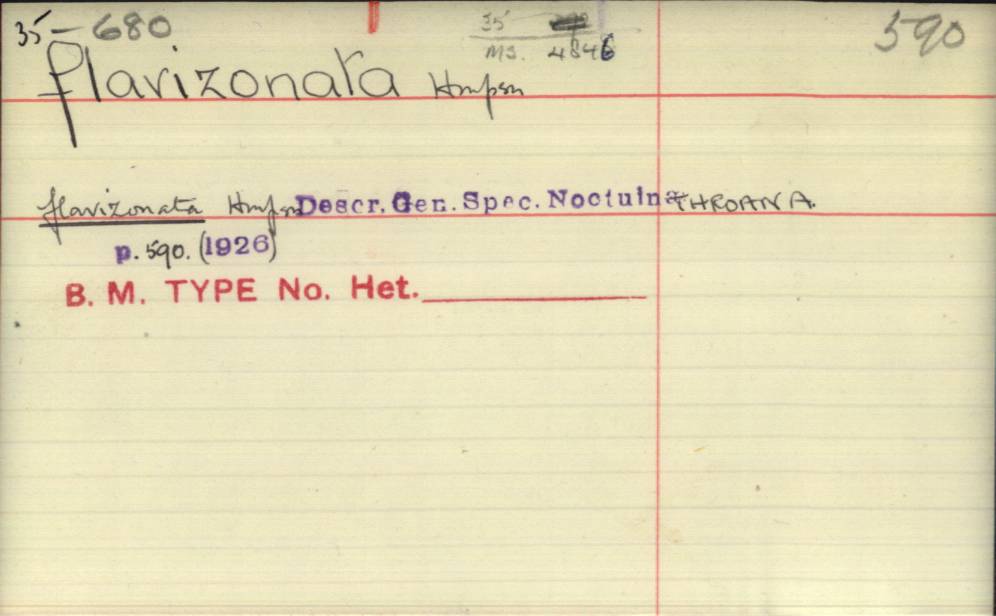 35-680 35 590
MS. 4846
flavizonata Hmpsn
flavizonata Hmpsn Descr. Gen. Spec. Noctuinæ THROANA.
p. 590. (1926)
B. M. TYPE No. Het.